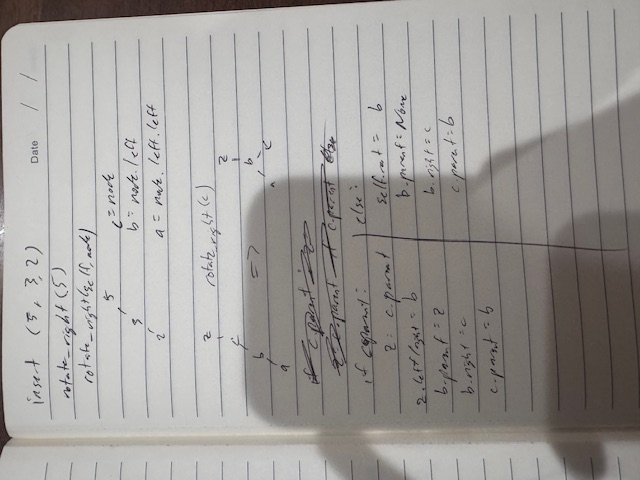 insert (5, 3, 2)
Date / /
rotate_right(5)
rotate_right(self, node)
5
3
2
c = node
b = node.left
a = node.left.left
z
c
b
a
rotate_right(c)
=>
z
b
a c
if c.parent
c.parent if c.parent else
if c.parent:
z = c.parent
z.left/right = b
b.parent = z
b.right = c
c.parent = b
else:
self.root = b
b.parent = None
b.right = c
c.parent = b